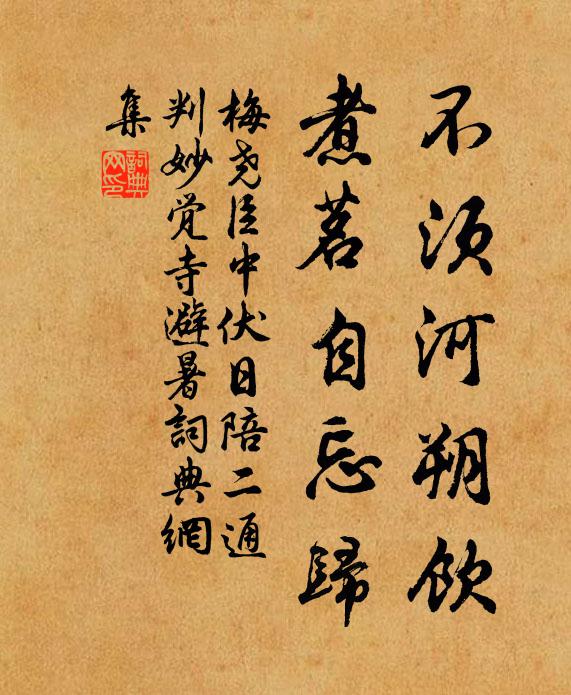 不须河朔饮
煮茗自忘歸
梅尧臣中伏日陪二通
判妙觉寺避暑詞典網
集
詞典网印